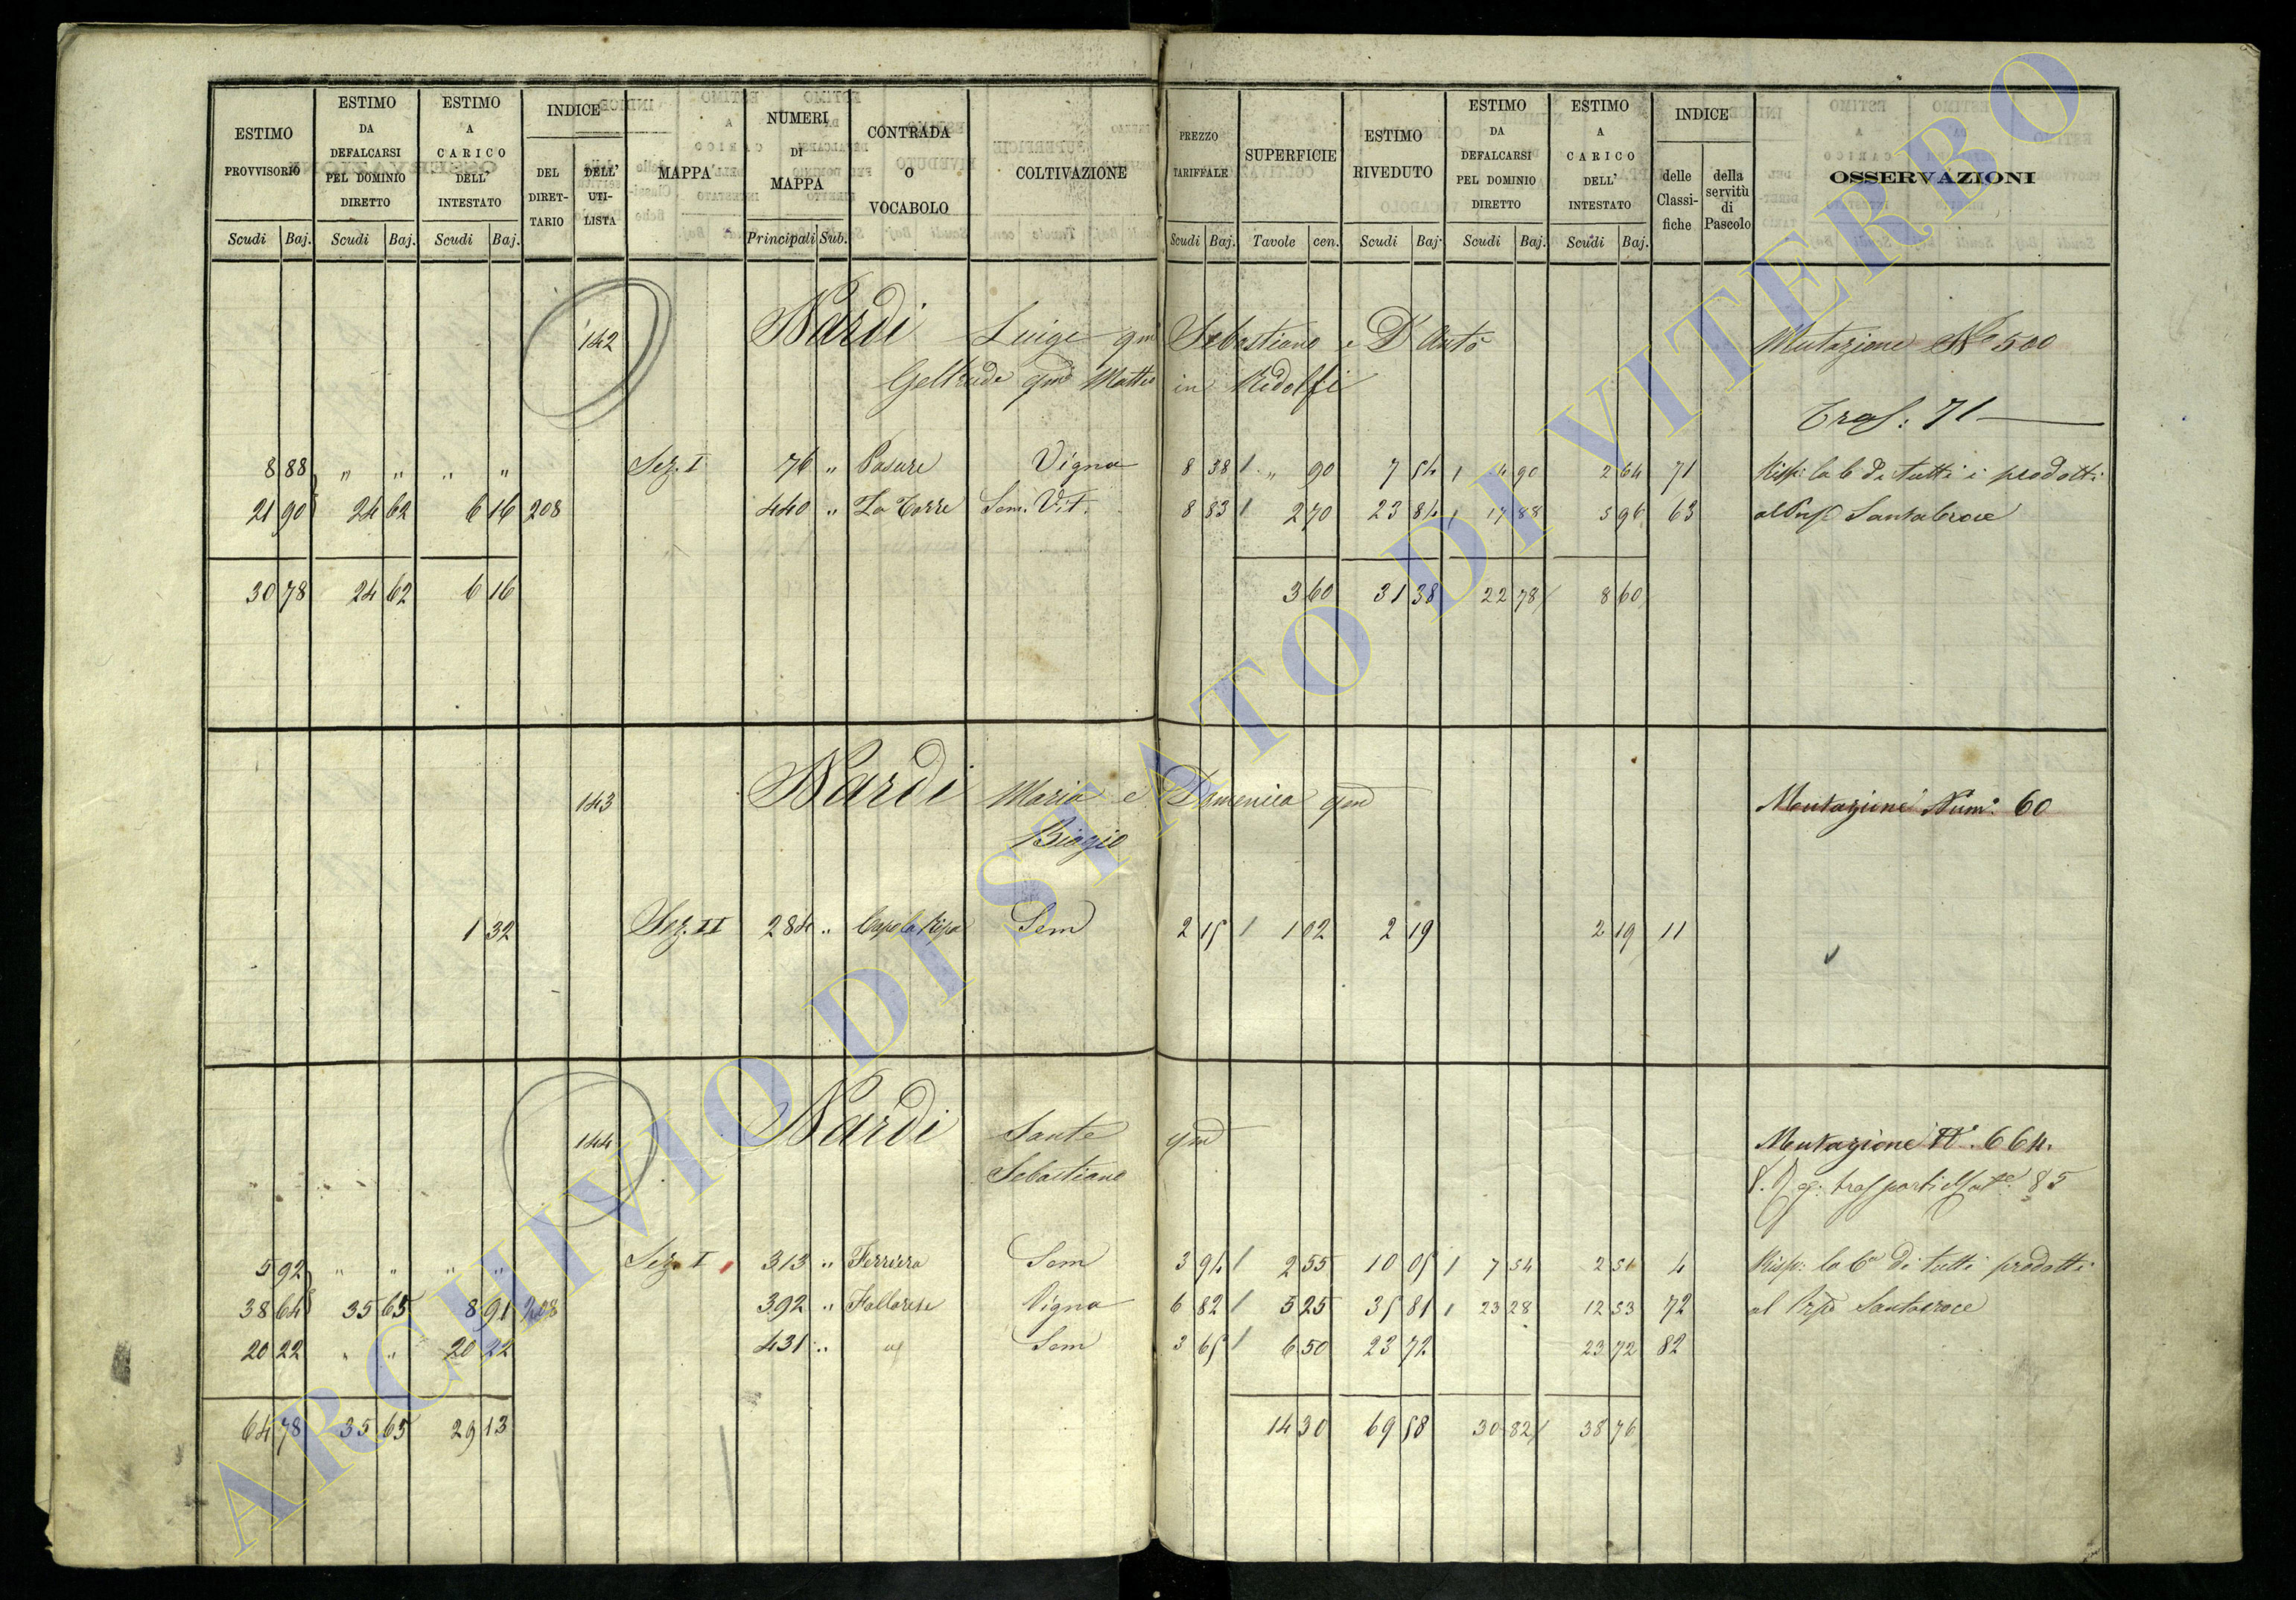 ESTIMO PROVVISORIO Scudi Baj. ESTIMO DA DEFALCARSI PEL DOMINIO DIRETTO Scudi Baj. ESTIMO A CARICO DELL' INTESTATO Scudi Baj. INDICE DEL DIRET-TARIO DELL' UTI-LISTA MAPPA NUMERI DI MAPPA Principali Sub. CONTRADA O VOCABOLO COLTIVAZIONE PREZZO TARIFFALE Scudi Baj. SUPERFICIE Tavole cen. ESTIMO RIVEDUTO Scudi Baj. ESTIMO DA DEFALCARSI PEL DOMINIO DIRETTO Scudi Baj. ESTIMO A CARICO DELL' INTESTATO Scudi Baj. INDICE delle Classi-fiche della servitù di Pascolo OSSERVAZIONI
142 Nardi Luigi qm Sebastiano e D'Antò Mutazione No 500
Geltrude qm Matteo in Ridolfi
Tras: 71
8 88 " " " " Sez. I 76 " Pasure Vigna 8 38 " 90 7 54 4 90 2 64 71 Risp: la 6 di tutti i prodotti
21 90 24 62 6 16 208 440 " La Torre Sem. Vit. 8 83 2 70 23 84 17 88 5 96 63 Santacroce
30 78 24 62 6 16 3 60 31 38 22 78 8 60
143 Nardi Maria e Domenica qm Mutazione Num. 60
Biagio
1 32 Sez. II 284 " Capo la Ripa Sem 2 15 1 02 2 19 2 19 11
144 Nardi Sante qm Mutazione No. 664.
Sebastiano 85
5 92 " " " " Sez. I 313 " Ferriera Sem 3 94 2 55 10 05 7 54 2 51 4 Risp: la 6a di tutti prodotti
38 64 35 65 8 91 208 392 " Fallarese Vigna 6 82 5 25 35 81 23 28 12 53 72 al Santacroce
20 22 " " 20 22 431 " Sem 3 65 6 50 23 72 23 72 82
64 78 35 65 29 13 14 30 69 58 30 82 38 76
ARCHIVIO DI STATO DI VITERBO